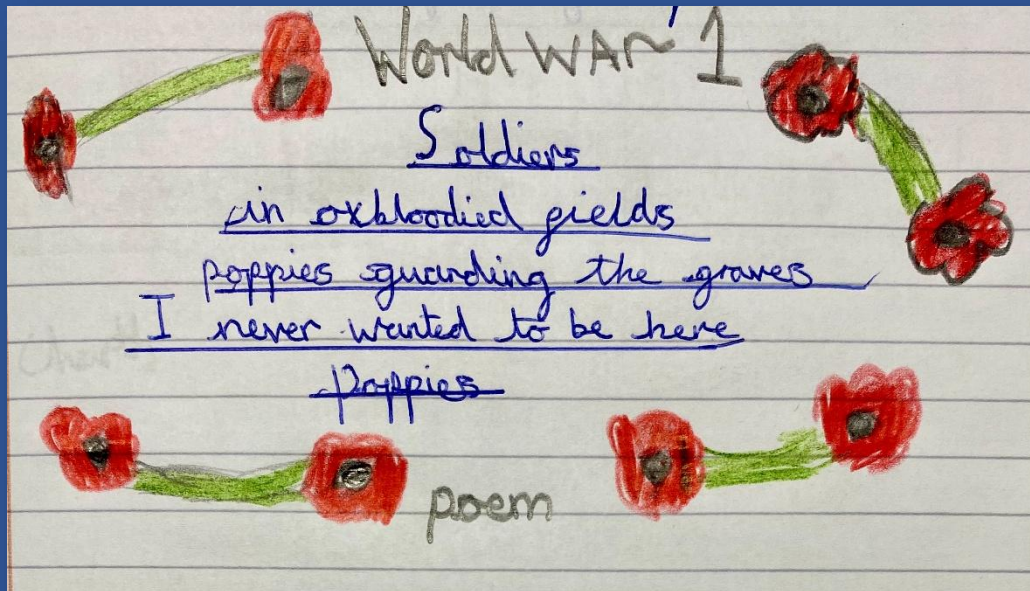 World WAr 1
Soldiers
in oxbloodied fields
poppies guarding the graves
I never wanted to be here
Poppies
poem